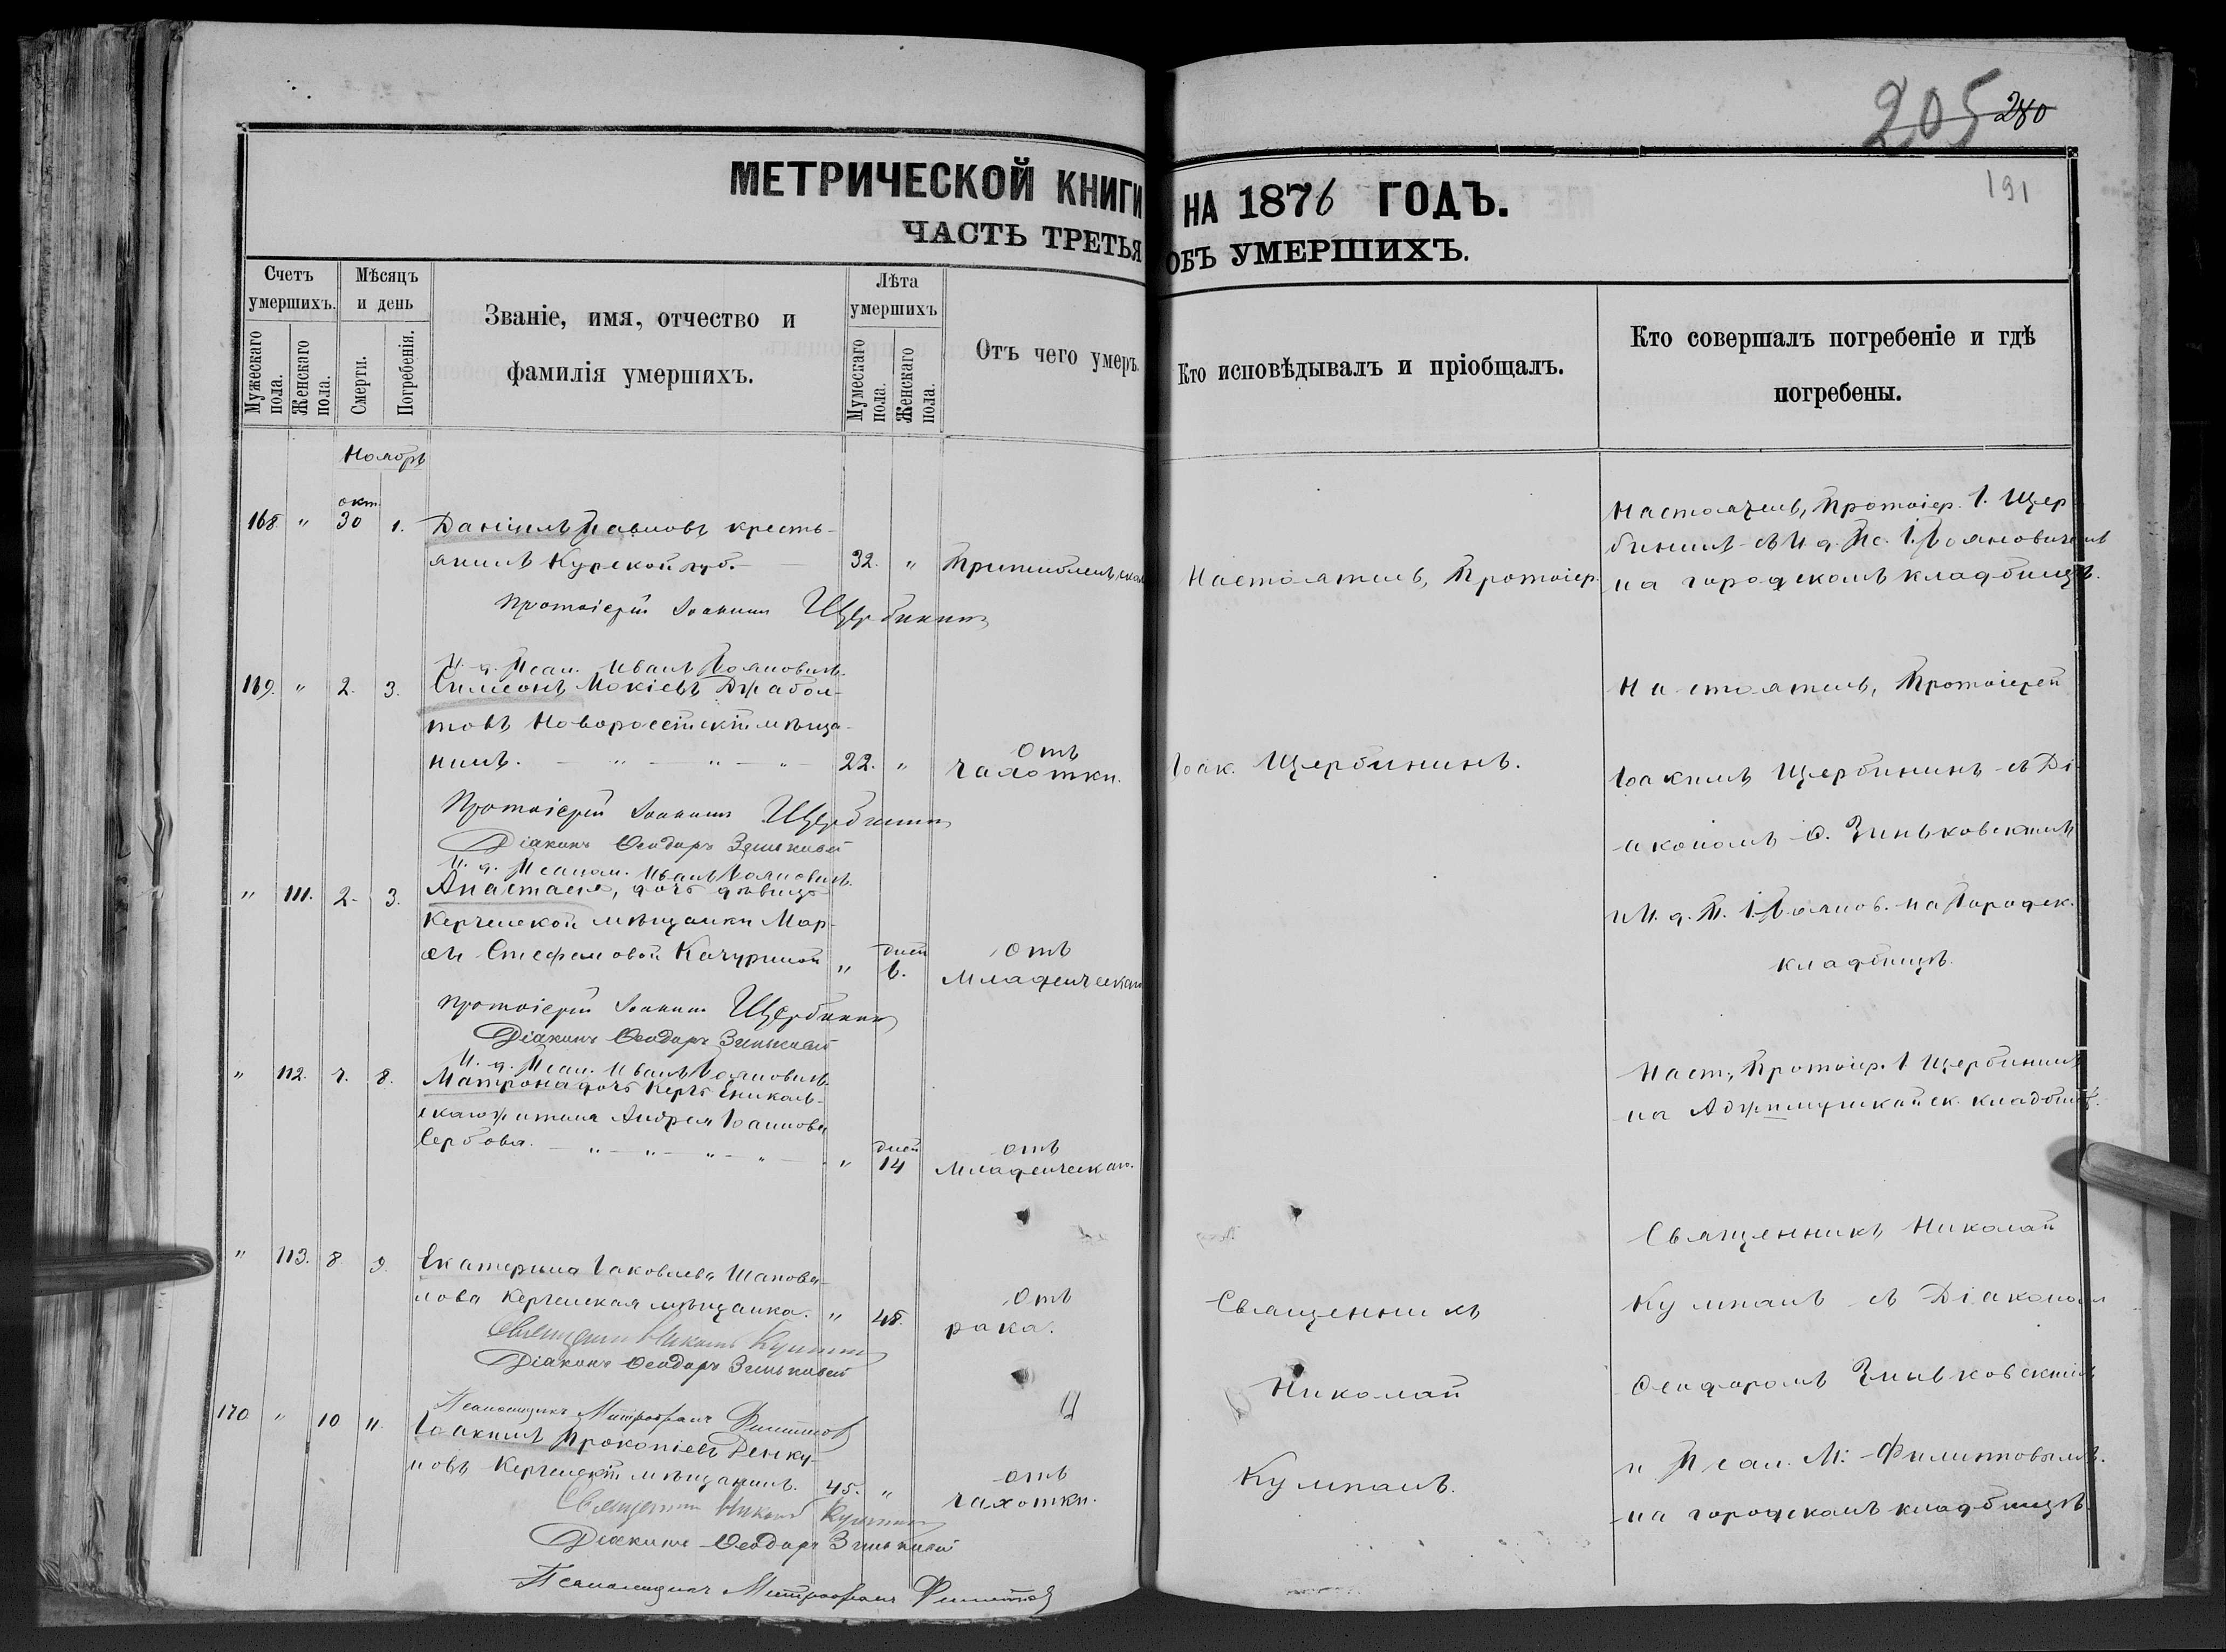 205 280
191
МЕТРИЧЕСКОЙ КНИГИ НА 1876 ГОДЪ.
ЧАСТЬ ТРЕТЬЯ ОБЪ УМЕРШИХЪ.
Счетъ умершихъ.
Мужескаго пола.
Женскаго пола.
Мѣсяцъ и день
Смерти.
Погребенія.
Званіе, имя, отчество и
фамилія умершихъ.
Лѣта умершихъ
Мужескаго пола.
Женскаго пола.
Отъ чего умеръ.
Кто исповѣдывалъ и пріобщалъ.
Кто совершалъ погребеніе и гдѣ
погребены.
Ноябрь
окт.
168 " 30 1. Даніилъ Павловъ кресть-
янинъ Курской губ. 32. "
Протоіерей Іоакимъ Щербининъ
И. д. Псал. Иванъ
169. " 2. 3. Симеонъ Мокіевъ
товъ Новороссійскій мѣща-
нинъ. 22. " Отъ чахотки.
Протоіерей Іоакимъ Щербининъ
Діаконъ Ѳеодоръ Зиньковскій
И. д. Псалом. Иванъ
" 111. 2. 3. Анастасія, дочь дѣвицы
Керченской мѣщанки Мар-
ѳи Стефановой Качуриной " дней 6. Отъ младенческой
Протоіерей Іоакимъ Щербининъ
Діаконъ Ѳеодоръ Зиньковскій
И. д. Псал. Иванъ
" 112. 7. 8. Матрона дочь Керчь Ениколь-
скаго жителя Андрея Іоаннова
Сербова. " дней 14 отъ младенческой.
" 113. 8. 9. Екатерина Іаковлева Шапова-
лова Керченская мѣщанка. " 48. Отъ рака.
Священникъ Николай Кумпанъ
Діаконъ Ѳеодоръ Зиньковскій
Псаломщикъ Митрофанъ Филипповъ
170 " 10 11. Іоакимъ Прокопіевъ
новъ Керченскій мѣщанинъ. 45. " отъ чахотки.
Священникъ Николай Кумпанъ
Діаконъ Ѳеодоръ Зиньковскій
Псаломщикъ Митрофанъ Филипповъ
Настоятель, Протоіер.
Іоак. Щербининъ.
Священникъ
Николай
Кумпанъ.
Настоятель, Протоіер. І. Щер
бининъ съ И. д. Пс. І.
на городскомъ кладбищѣ.
Настоятель, Протоіерей
Іоакимъ Щербининъ съ Ді-
акономъ Ѳ. Зиньковскимъ
и И. д. П. І. на Городск.
кладбищѣ.
Наст., Протоіер. І. Щербининъ
на Аджимушкайск. кладбищѣ.
Священникъ Николай
Кумпанъ съ Діакономъ
Ѳеодоромъ Зиньковскимъ
и Псал. М. Филипповымъ.
на городскомъ кладбищѣ.